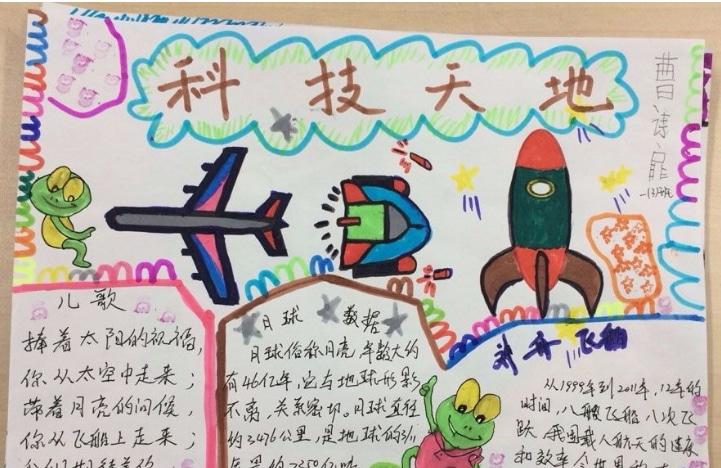 科技天地
曹诗
儿歌
捧着太阳的祝福,
你从太空中走来;
带着月亮的问候,
你从飞船上走来;
月球 数据
月球俗称月亮,年龄大约
有46亿年,它与地球形影
不离,关系密切。月球直径
约3476公里,是地球的3/11
神舟飞船
从1999年到2011年,12年的
时间,八艘飞船,八次飞
跃,我国载人航天的速度
和效率令世界